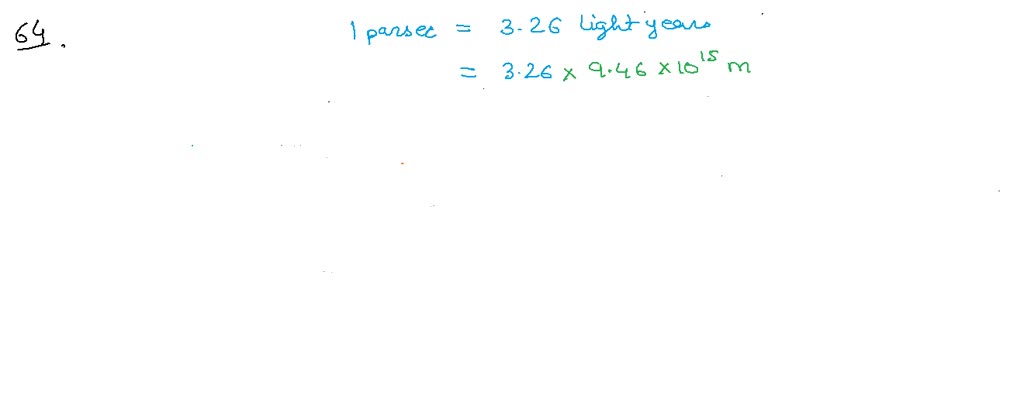 64.
1 parsec = 3.26 light years
= 3.26 × 9.46 × 10¹⁵ m